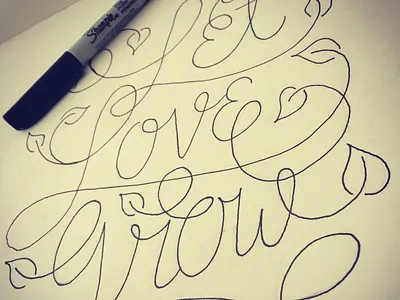 Sharpie
LET
LOVE
Grow